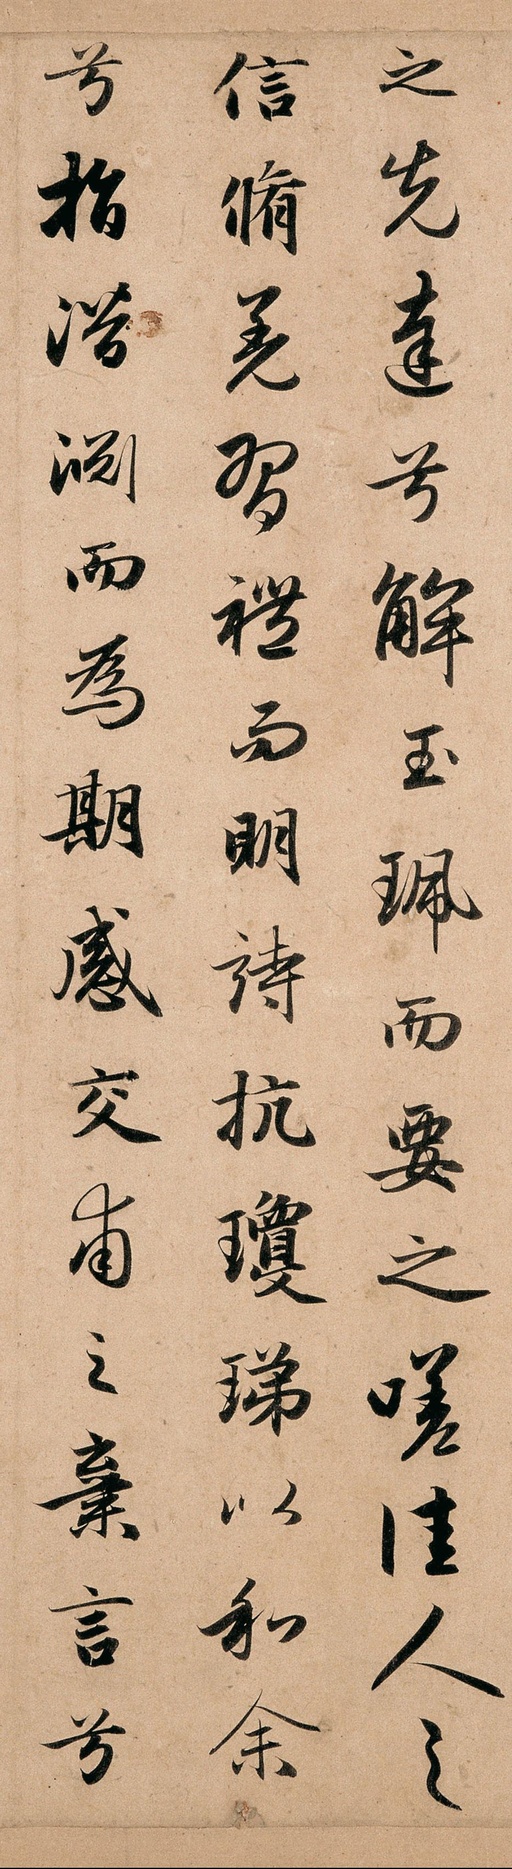 之先達兮解玉珮而要之嗟佳人之
信脩羌習禮而明詩抗瓊珶以和余
兮指潛淵而為期感交甫之棄言兮